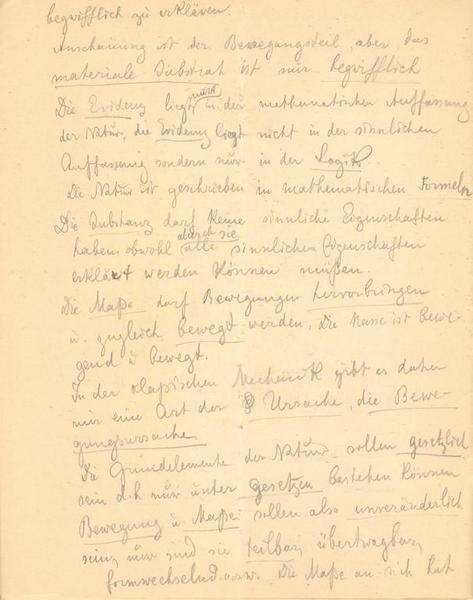 begrifflich zu erklären.
Anschauung ist der Bewegungsteil, aber das
materiale Substrat ist nur begrifflich
Die Evidenz liegt nur in der mathematischen Auffassung
der Natur, die Evidenz liegt nicht in der sinnlichen
Auffassung sondern nur in der Logik
Die Natur ist geschrieben in mathematischen Formeln
Die Substanz darf keine sinnliche Eigenschaften
haben, obwohl durch sie alle sinnlichen Eigenschaften
erklärt werden können müßen.
Die Maße darf Bewegungen hervorbringen
u. zugleich bewegt werden, Die Masse ist bewe-
gend u bewegt.
In der klassischen Mechanik gibt es daher
nur eine Art der Ursache, die Bewe-
gungsursache.
Die Grundelemente der Natur sollen gesetzlich
sein d.h. nur unter gesetzen bestehen können
Bewegung u. Maße sollen also unveränderlich
sein, nur sind sie teilbar, übertragbar,
formwechselnd usw. Die Maße an sich hat